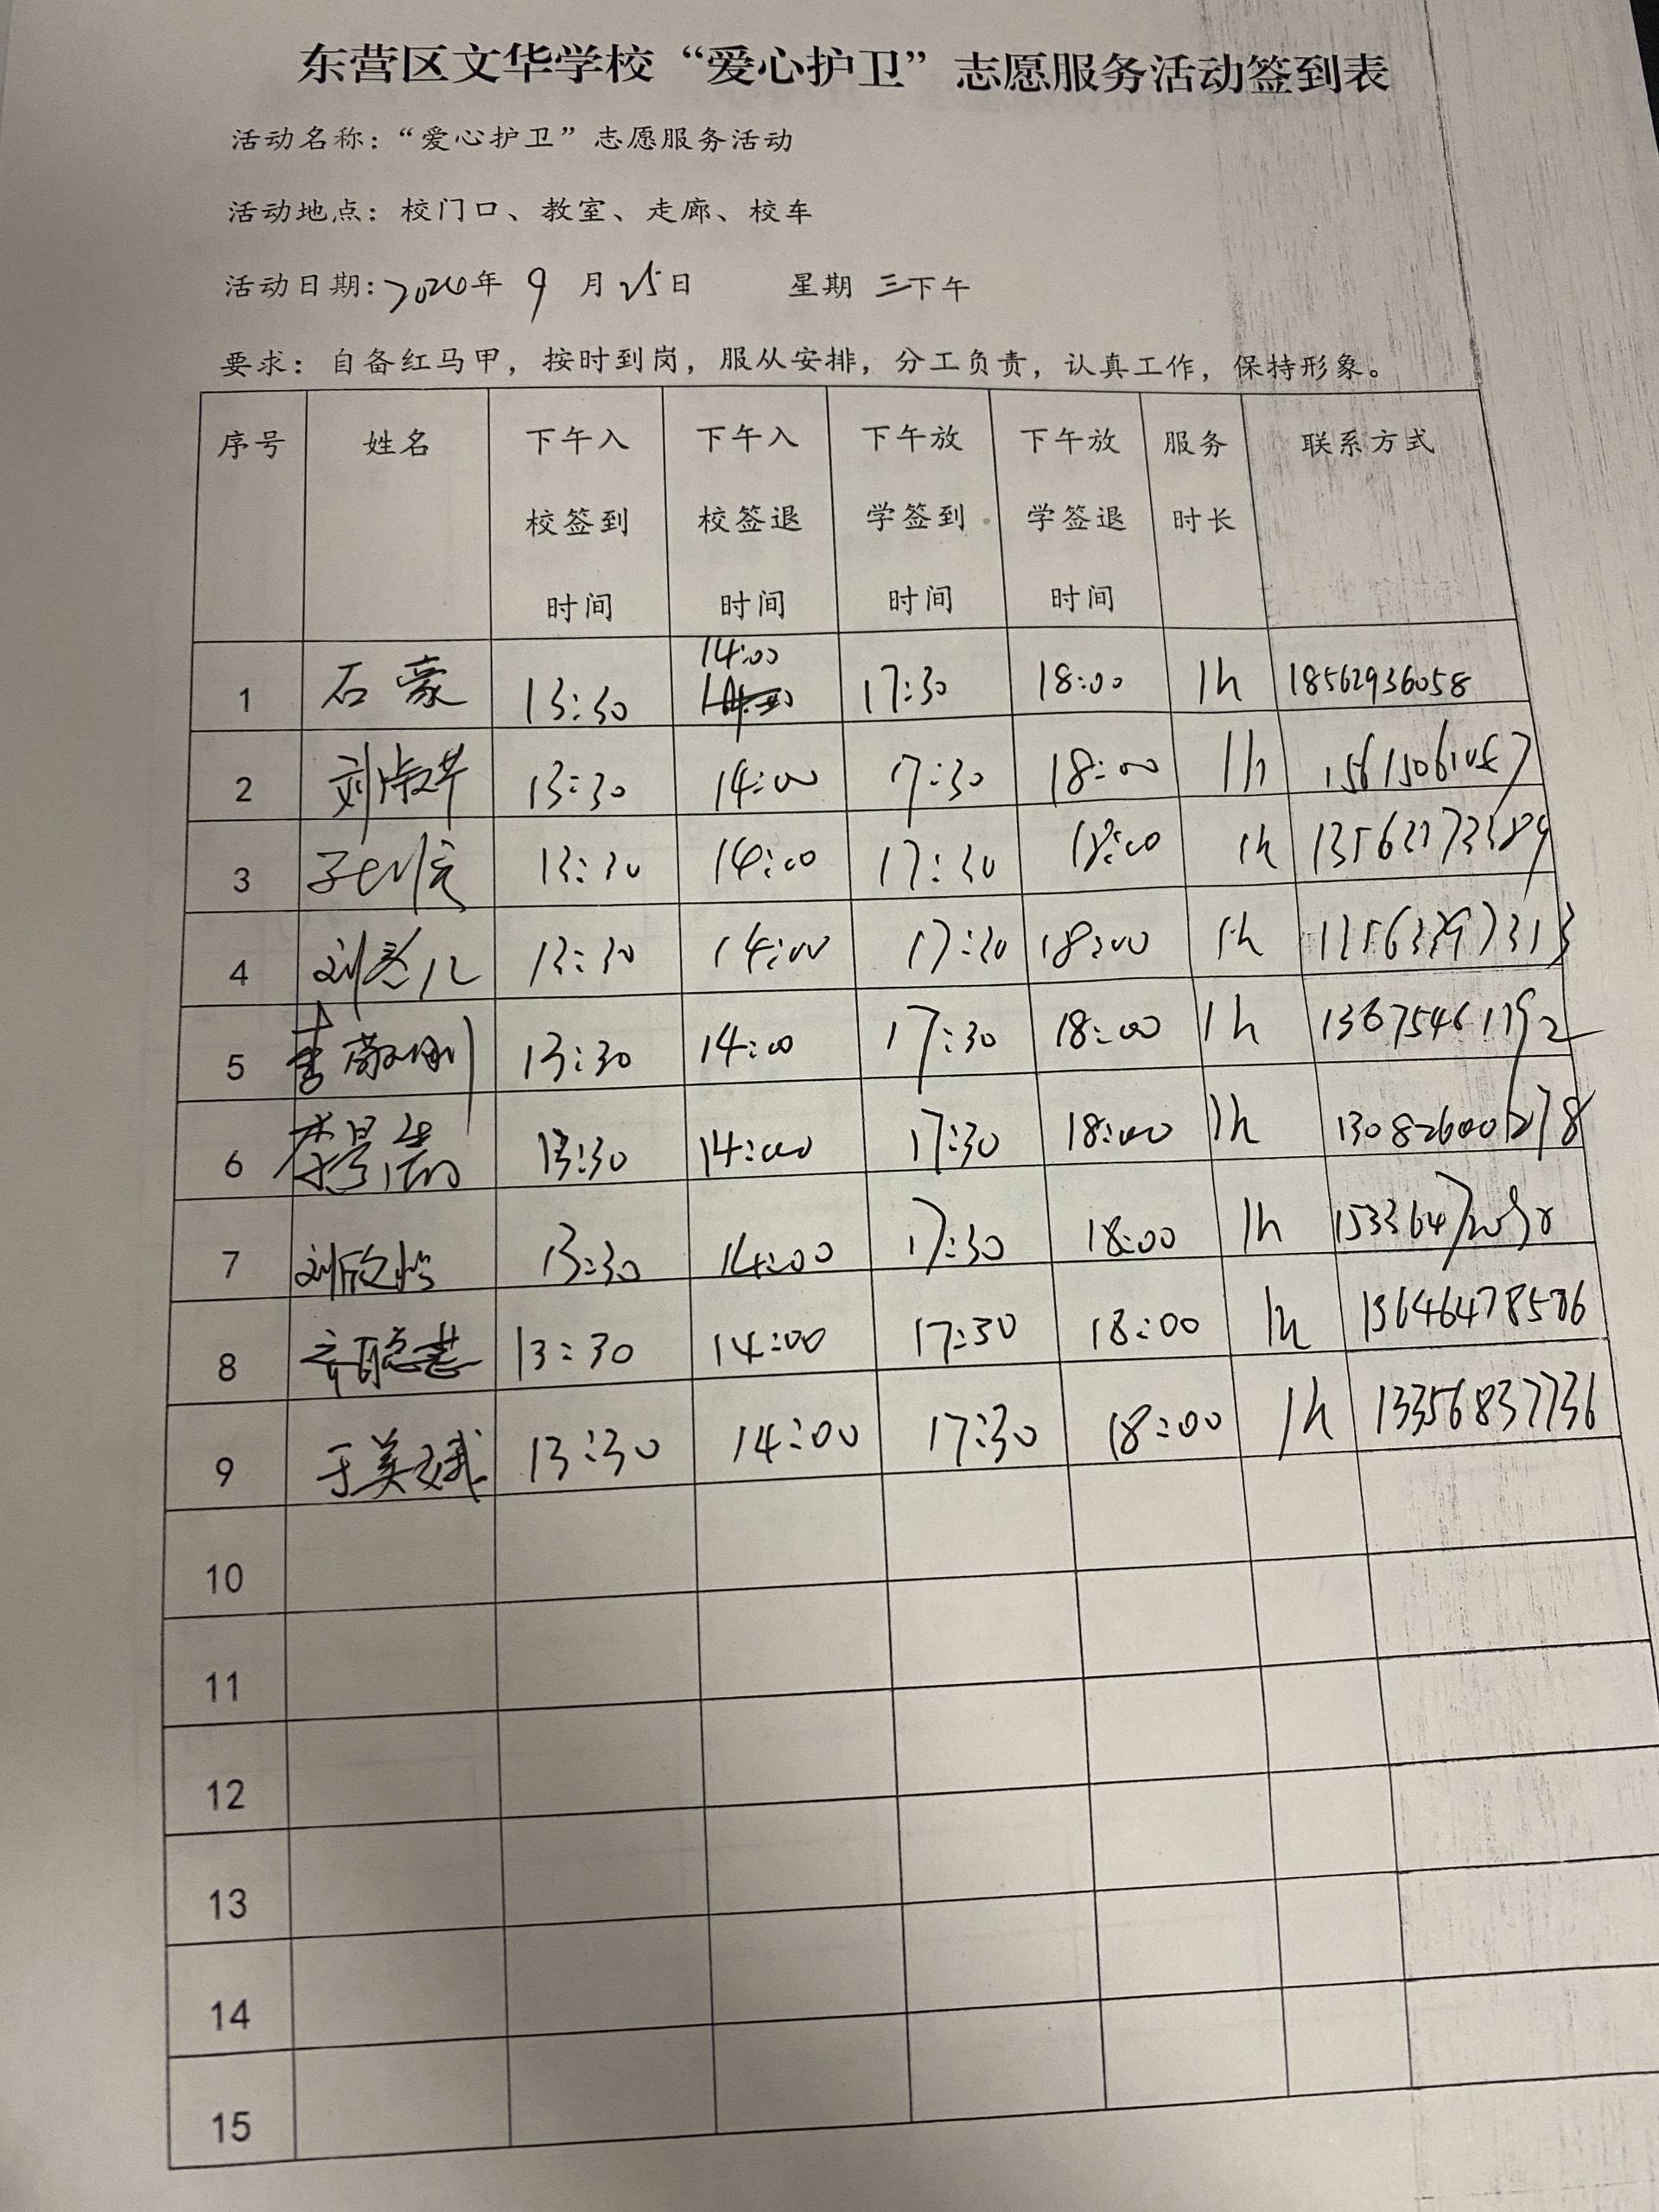 东营区文华学校“爱心护卫”志愿服务活动签到表
活动名称：“爱心护卫”志愿服务活动
活动地点：校门口、教室、走廊、校车
活动日期: 年 9 月 25日 星期 三下午
要求：自备红马甲，按时到岗，服从安排，分工负责，认真工作，保持形象。
序号 姓名 下午入校签到时间 下午入校签退时间 下午放学签到时间 下午放学签退时间 服务时长 联系方式
1 石豪 13:30 14:00 17:30 18:00 1h 18562936058
2 13:30 14:00 17:30 18:00 1h
3 13:30 14:00 17:30 18:00 1h
4 13:30 14:00 17:30 18:00 1h
5 13:30 14:00 17:30 18:00 1h
6 13:30 14:00 17:30 18:00 1h
7 13:30 14:00 17:30 18:00 1h
8 13:30 14:00 17:30 18:00 1h
9 于美斌 13:30 14:00 17:30 18:00 1h 13356837736
10
11
12
13
14
15